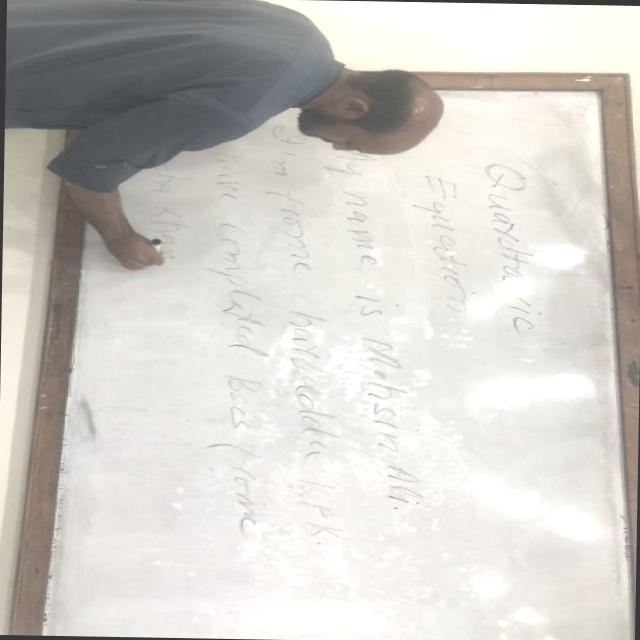 Quardta ic
Equestion
My name is Mohsin Ali.
I'm frome charsadda kpk.
have completed Bcs frome